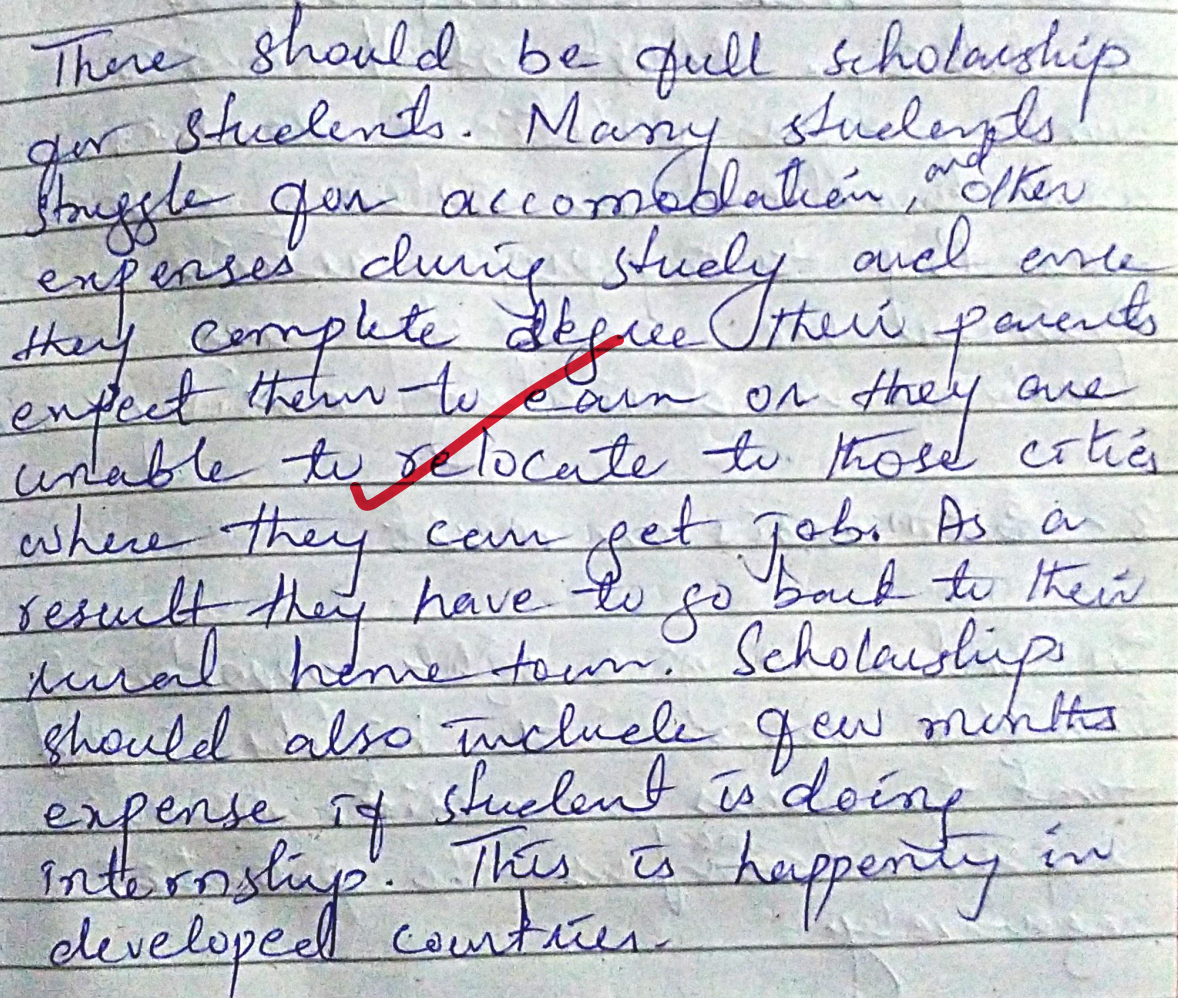 There should be full scholarship
for students. Many students
struggle for accomodation, and other
expenses during study and once
they complete degree their parents
expect them to earn or they are
unable to relocate to those cities
where they can get job. As a
result they have to go back to their
rural home town. Scholarships
should also include few months
expense if student is doing
internship. This is happening in
developed countries.